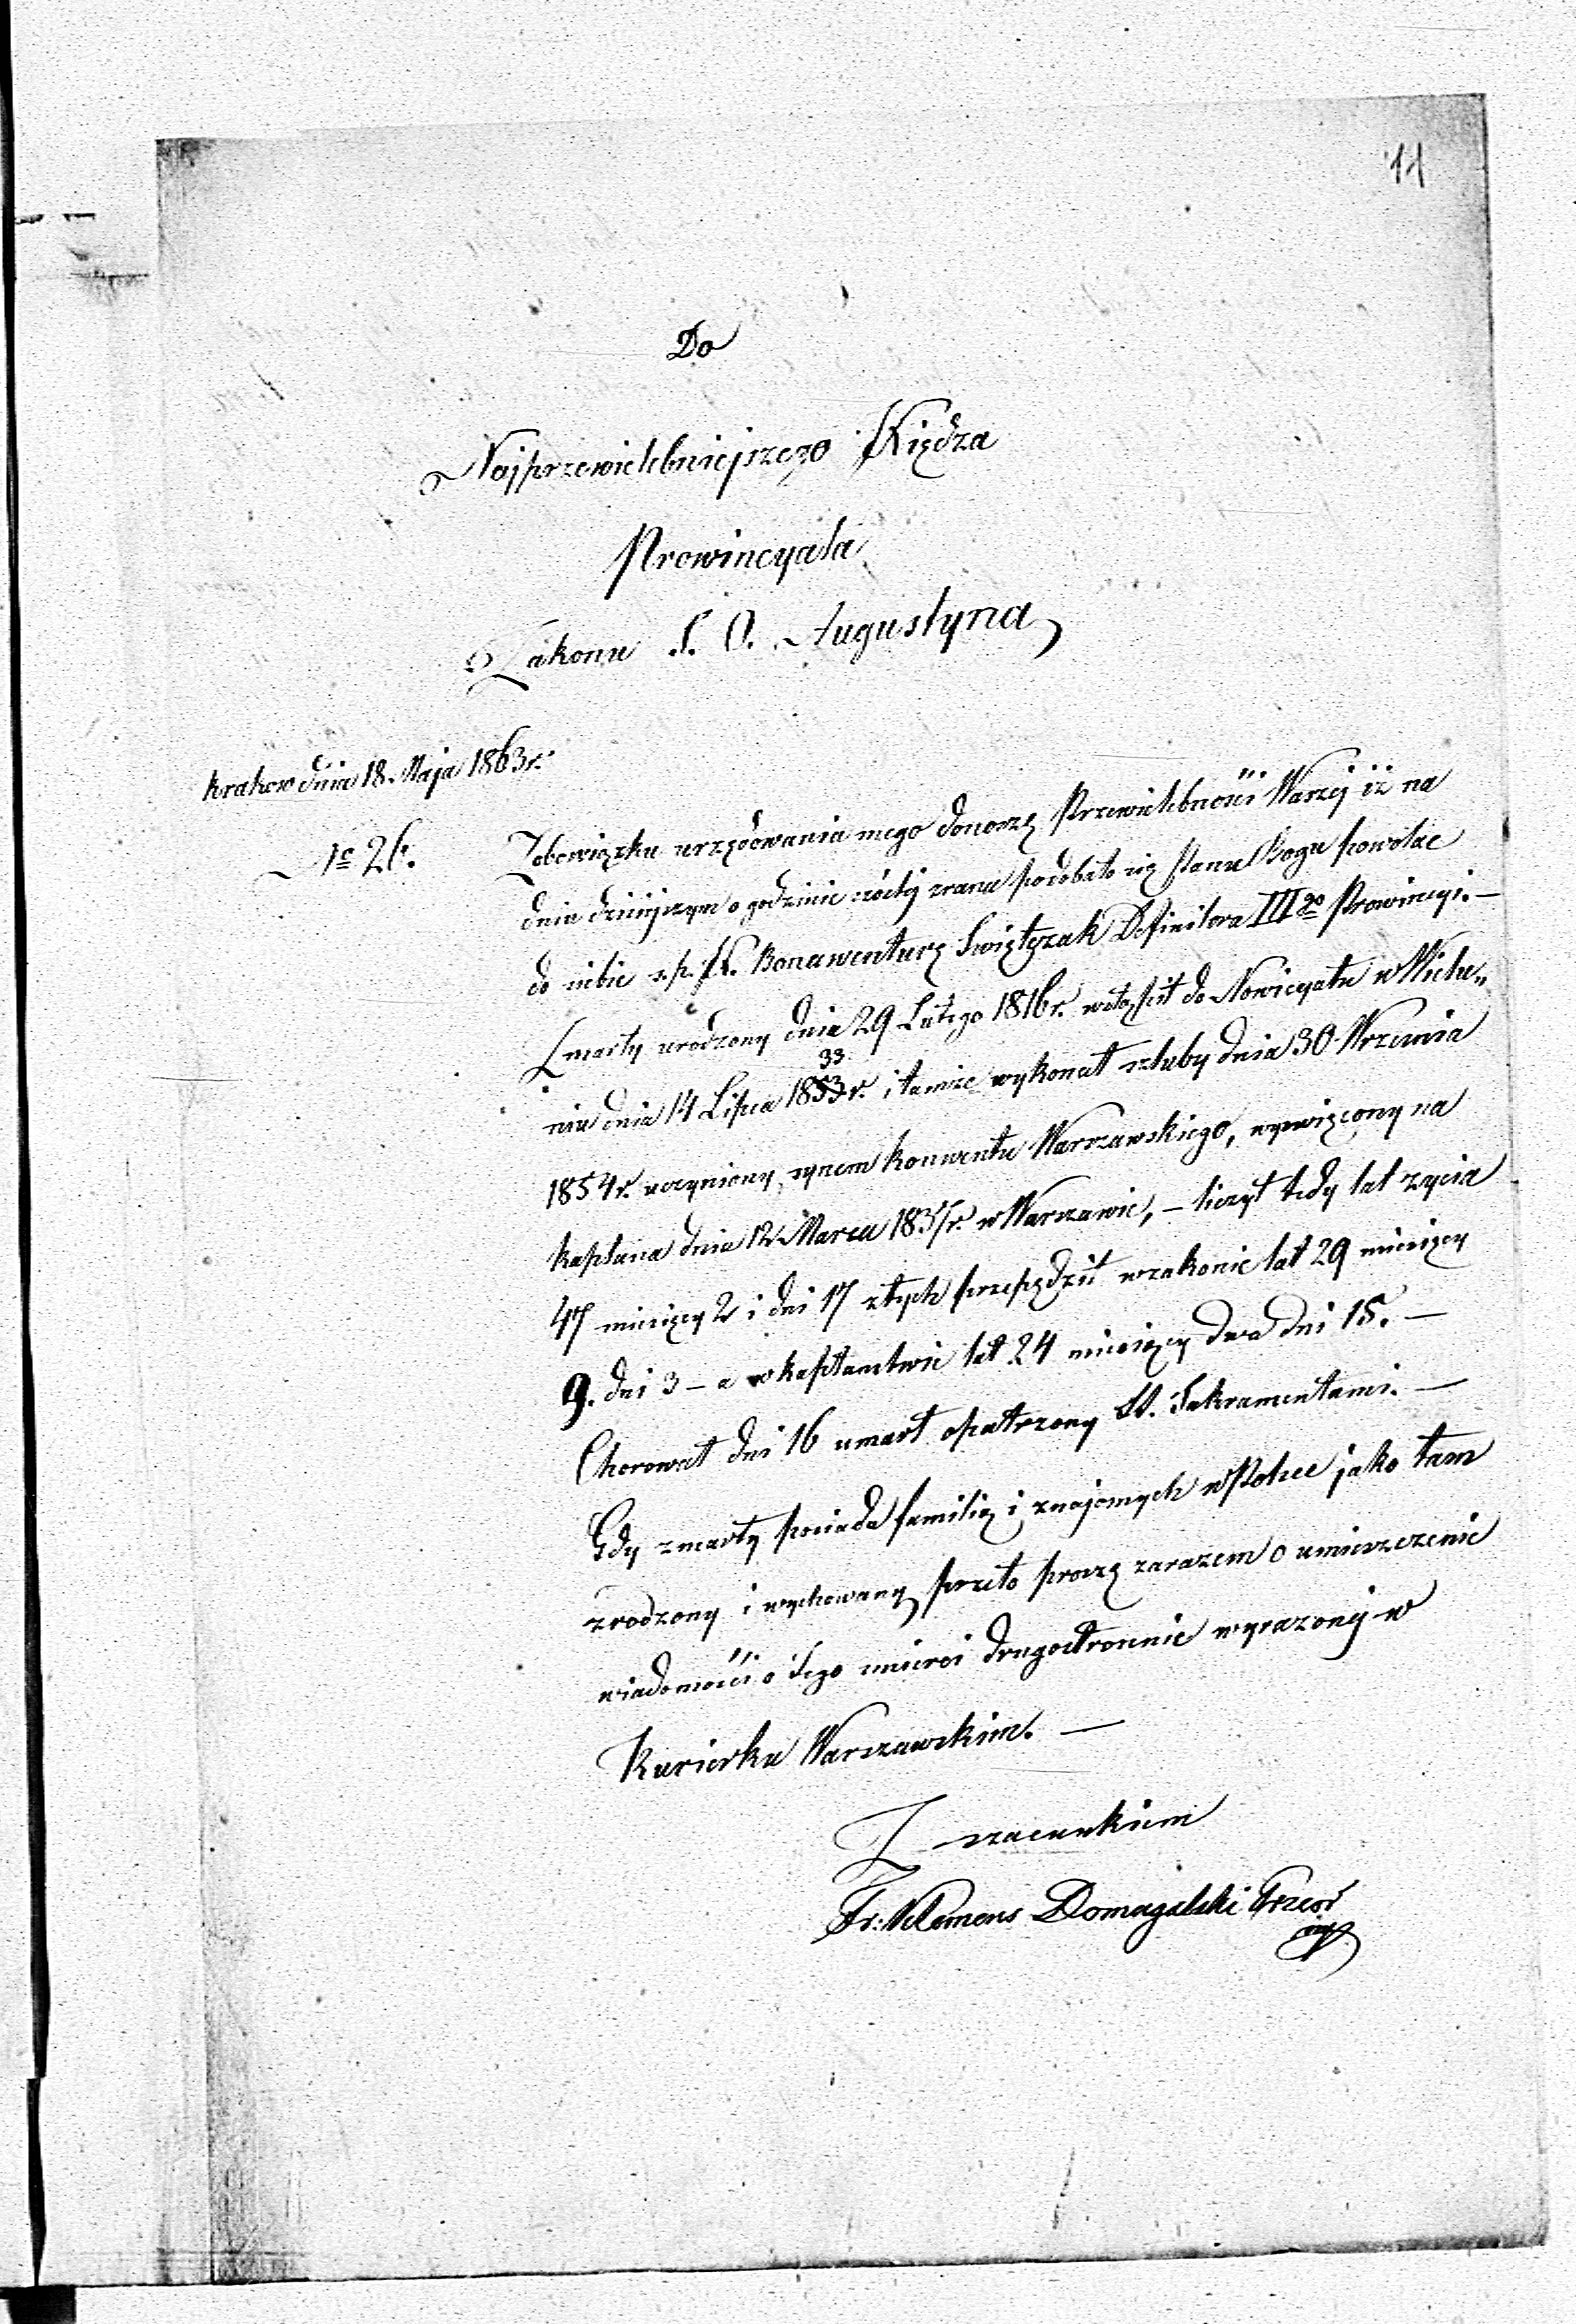 11
Do
Najprzewielebniejszego Księdza
Prowincyała
Zakonu S. O. Augustyna
Krakow dnia 18. Maja 1863 r.
Nr 26.
Z obowiązku urzędowania mego donoszę Przewielebności Waszej iż na
dniu dzisiejszym o godzinie szóstej zrana podobało się Panu Bogu powołac
do siebie s.p. X. Bonawenturę Swiętyzak Definitora III go Prowincyi. —
Zmarły urodzony dnia 29 Lutego 1816 r. wstąpił do Nowicyatu w Wielu„
niu dnia 14 Lipca 1853 33 r. i tamże wykonał szluby dnia 30 Wrzesnia
1854 r. uczyniony synem Konwentu Warszawskiego, wyswięcony na
kapłana dnia 12 Marca 1837 r. w Warszawie, — liczył tedy lat zycia
47 miesięcy 2 i dni 17 z tych przepędził w zakonie lat 29 miesięcy
9. dni 3 — a w kapłanstwie lat 24 miesięcy dwa dni 15. —
Chorował dni 16 umarł opatrzony SS. Sakramentami. —
Gdy zmarły posiada familię i znajomych w Polsce jako tam
zrodzony i wychowany przeto proszę zarazem o umieszczenie
wiadomości o Jego smierci drugostronnie wyrazonej w
Kurierku Warszawskim. —
Z szacunkiem
Fr: Klemens Domagalski Przeor
mp